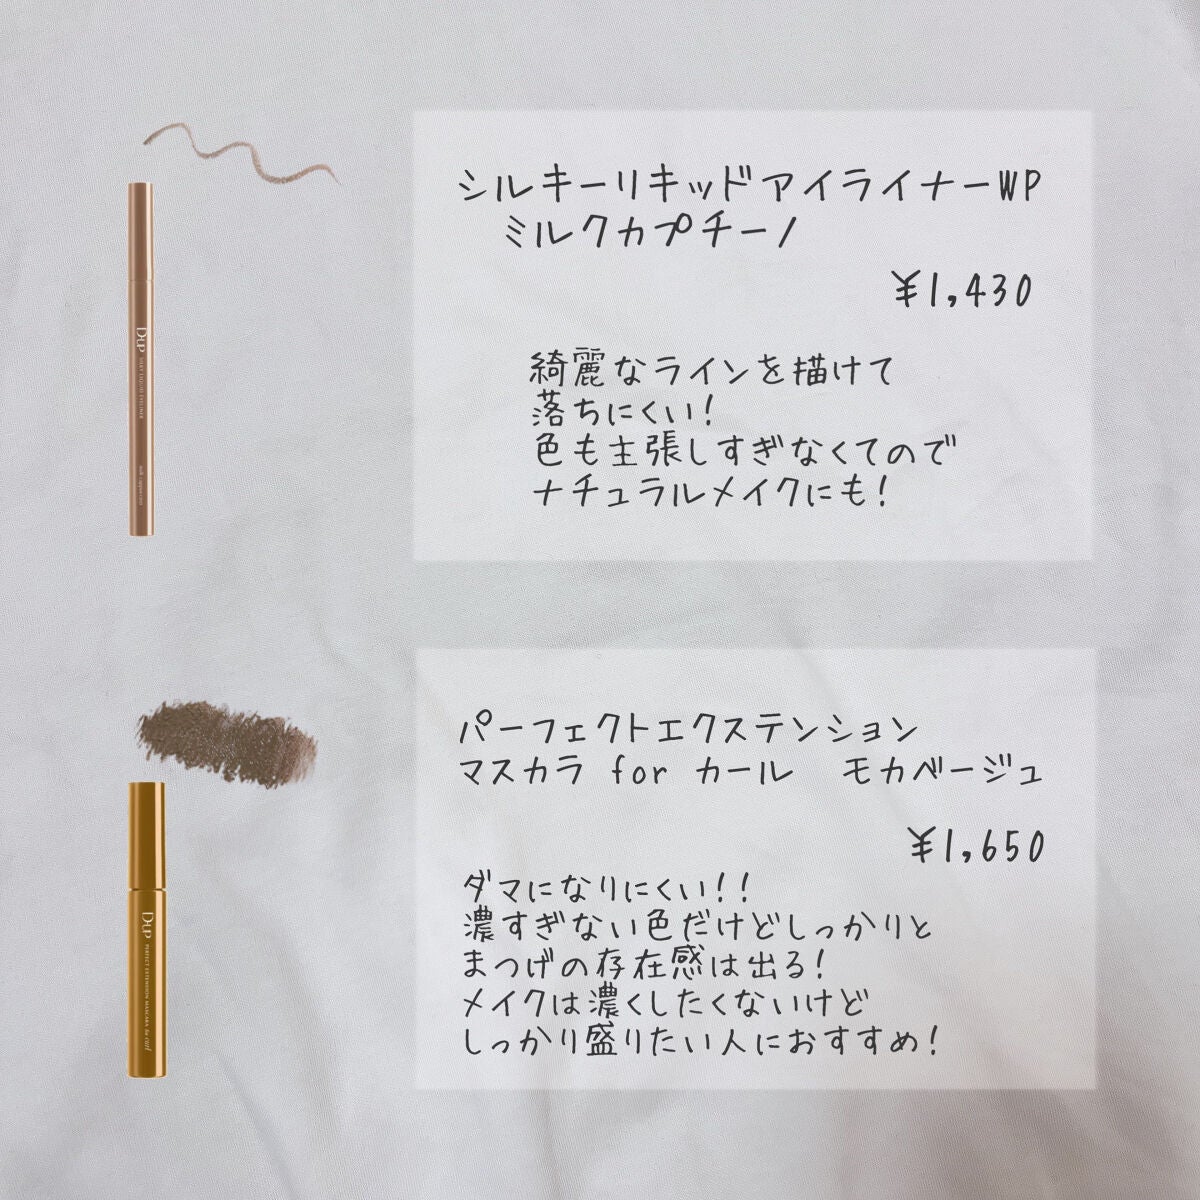 シルキーリキッドアイライナーWP
ミルクカプチーノ
¥1,430
綺麗なラインを描けて
落ちにくい!
色も主張しすぎなくてので
ナチュラルメイクにも!
D-UP SILKY LIQUID EYELINER milk cappuccino
パーフェクトエクステンション
マスカラ for カール モカベージュ
¥1,650
ダマになりにくい!!
濃すぎない色だけどしっかりと
まつげの存在感は出る!
メイクは濃くしたくないけど
しっかり盛りたい人におすすめ!
D-UP PERFECT EXTENSION MASCARA for curl